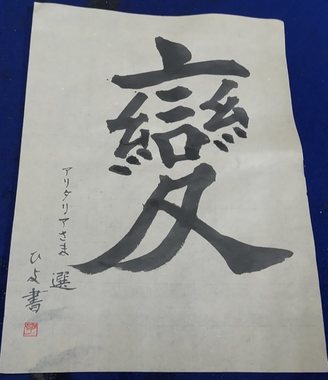 變
アリダリアさま 選
ひよ書